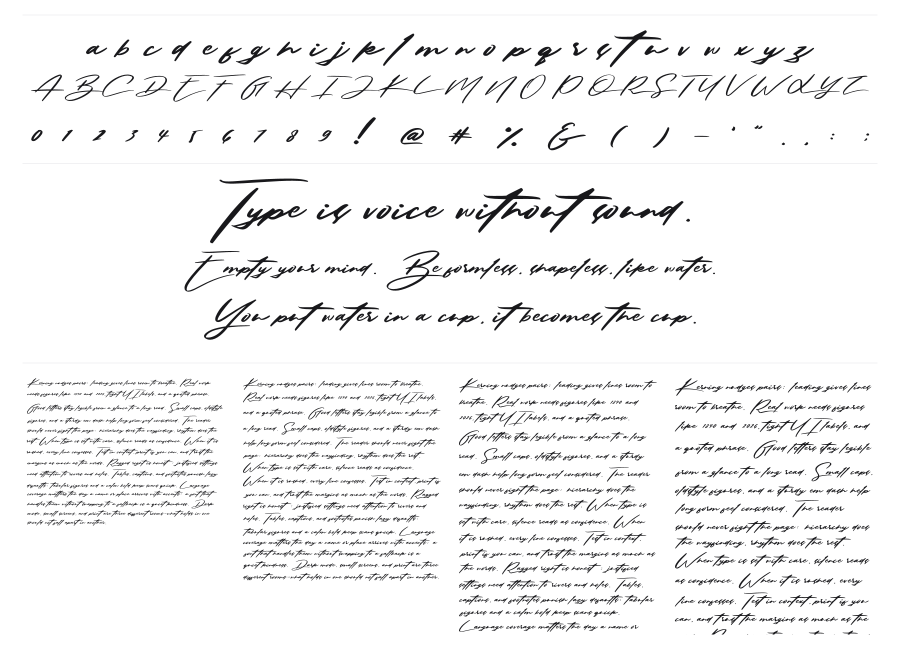 a b c d e f g h i j k l m n o p q r s t u v w x y z
A B C D E F G H I J K L M N O P Q R S T U V W X Y Z
0 1 2 3 4 5 6 7 8 9 ! @ # % & ( ) – ' " . , : ;
Type is voice without sound.
Empty your mind. Be formless, shapeless, like water.
You put water in a cup, it becomes the cup.
Kerning nudges pairs; leading gives lines room to breathe. Real work
needs figures like 1290 and 2026, tight UI labels, and a quoted phrase.
Good letters stay legible from a glance to a long read. Small caps, oldstyle
figures, and a sturdy em dash help long form feel considered. The reader
should never fight the page; hierarchy does the wayfinding, rhythm does the
rest. When type is set with care, silence reads as confidence. When it is
rushed, every line confesses. Test in context; print if you can, and trust the
margins as much as the words. Ragged right is honest; justified settings
need attention to rivers and holes. Tables, captions, and footnotes punish lazy
defaults. Tabular figures and a calm bold keep scans quick. Language
coverage matters the day a name or place arrives with accents; a font that
handles them without swapping to a fallback is a quiet kindness. Dark
mode, small screens, and print are three different rooms; what holds in one
should not fall apart in another.
Kerning nudges pairs; leading gives lines room to breathe.
Real work needs figures like 1290 and 2026, tight UI labels,
and a quoted phrase. Good letters stay legible from a glance to
a long read. Small caps, oldstyle figures, and a sturdy em dash
help long form feel considered. The reader should never fight the
page; hierarchy does the wayfinding, rhythm does the rest.
When type is set with care, silence reads as confidence.
When it is rushed, every line confesses. Test in context; print if
you can, and trust the margins as much as the words. Ragged
right is honest; justified settings need attention to rivers and
holes. Tables, captions, and footnotes punish lazy defaults.
Tabular figures and a calm bold keep scans quick. Language
coverage matters the day a name or place arrives with accents; a
font that handles them without swapping to a fallback is a
quiet kindness. Dark mode, small screens, and print are three
different rooms; what holds in one should not fall apart in another.
Kerning nudges pairs; leading gives lines room to
breathe. Real work needs figures like 1290 and
2026, tight UI labels, and a quoted phrase.
Good letters stay legible from a glance to a long
read. Small caps, oldstyle figures, and a sturdy
em dash help long form feel considered. The reader
should never fight the page; hierarchy does the
wayfinding, rhythm does the rest. When type is
set with care, silence reads as confidence. When
it is rushed, every line confesses. Test in context;
print if you can, and trust the margins as much as
the words. Ragged right is honest; justified
settings need attention to rivers and holes. Tables,
captions, and footnotes punish lazy defaults. Tabular
figures and a calm bold keep scans quick.
Language coverage matters the day a name or
Kerning nudges pairs; leading gives lines
room to breathe. Real work needs figures
like 1290 and 2026, tight UI labels, and
a quoted phrase. Good letters stay legible
from a glance to a long read. Small caps,
oldstyle figures, and a sturdy em dash help
long form feel considered. The reader
should never fight the page; hierarchy does
the wayfinding, rhythm does the rest.
When type is set with care, silence reads
as confidence. When it is rushed, every
line confesses. Test in context; print if you
can, and trust the margins as much as the